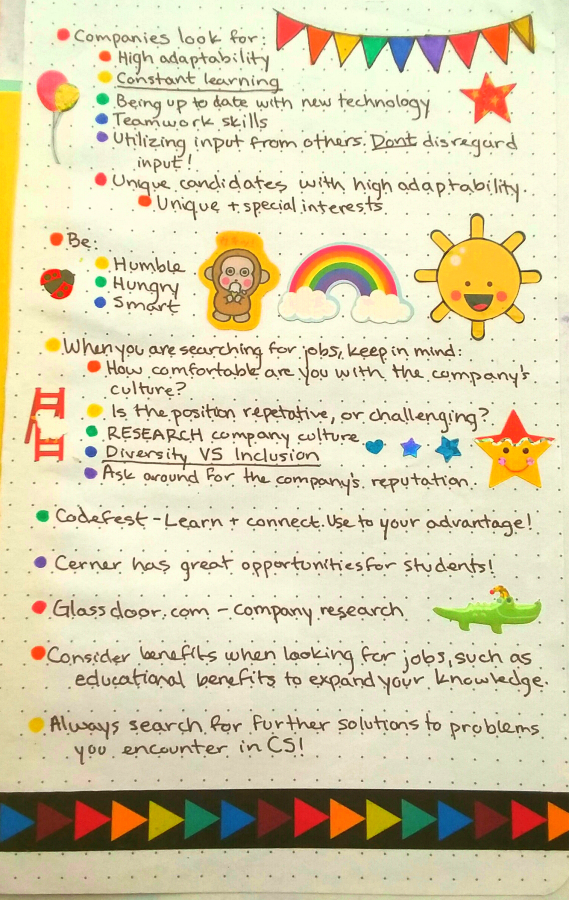 Companies look for:
High adaptability
Constant learning
Being up to date with new technology
Teamwork skills
Utilizing input from others. Dont disregard
input!
Unique candidates with high adaptability.
Unique + special interests
Be:
Humble
Hungry
Smart
When you are searching for jobs, keep in mind:
How comfortable are you with the company's
culture?
Is the position repetative, or challenging?
RESEARCH company culture
Diversity VS Inclusion
Ask around for the company's reputation.
Codefest - Learn + connect. Use to your advantage!
Cerner has great opportunities for students!
Glassdoor.com - company research
Consider benefits when looking for jobs, such as
educational benefits to expand your knowledge.
Always search for further solutions to problems
you encounter in CS!